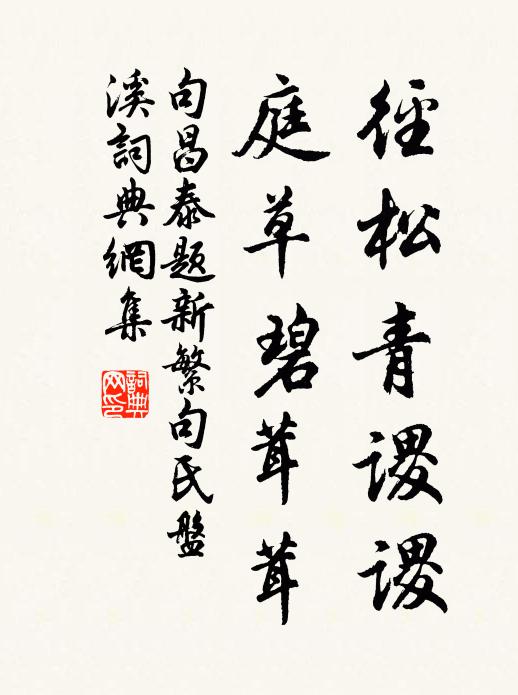 徑松青謖謖
庭草碧茸茸
句昌泰題新繁句氏盤
溪詞典網集
詞典
网印